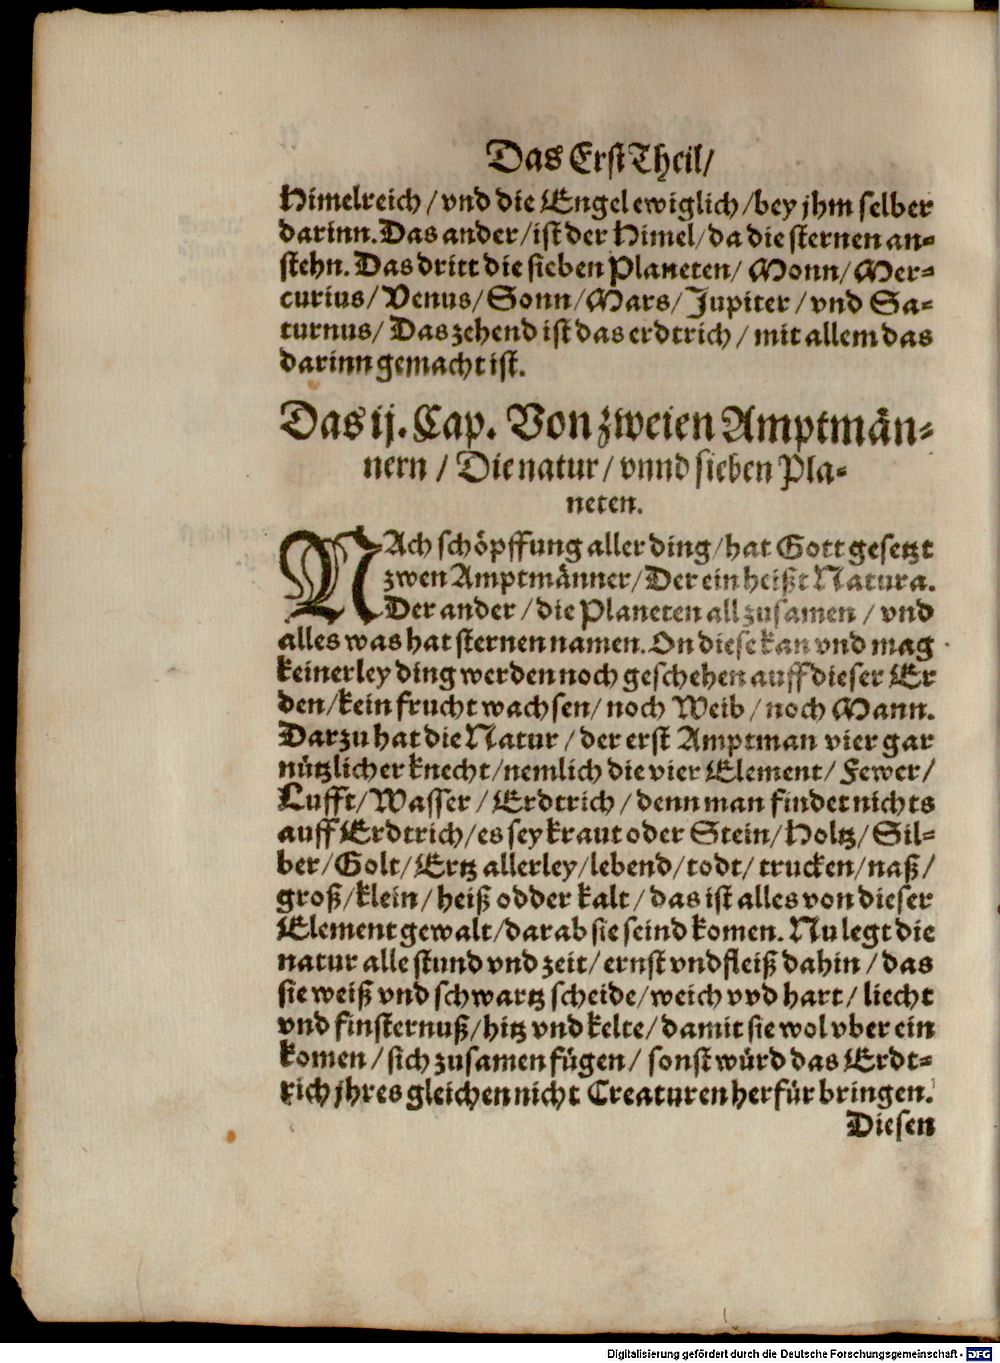 Das Erst Theil/
Himelreich/vnd die Engel ewiglich/bey jhm selber
darinn. Das ander/ist der Himel/da die sternen an-
stehn. Das dritt die sieben Planeten/Monn/Mer-
curius/Venus/Sonn/Mars/Jupiter/vnd Sa-
turnus/Das zehend ist das erdtrich/mit allem das
darinn gemacht ist.
Das ij. Cap. Von zweien Amptmän-
nern/Die natur/vnnd sieben Pla-
neten.
NAch schöpffung aller ding/hat Gott gesetzt
zwen Amptmänner/Der ein heißt Natura.
Der ander/die Planeten all zusamen/vnd
alles was hat sternen namen. On diese kan vnd mag
keinerley ding werden noch geschehen auff dieser Er
den/kein frucht wachsen/noch Weib/noch Mann.
Darzu hat die Natur/der erst Amptman vier gar
nützlicher knecht/nemlich die vier Element/Fewer/
Lufft/Wasser/Erdtrich/denn man findet nichts
auff Erdtrich/es sey kraut oder Stein/Holtz/Sil-
ber/Golt/Ertz allerley/lebend/todt/trucken/naß/
groß/klein/heiß odder kalt/das ist alles von dieser
Element gewalt/darab sie seind komen. Nu legt die
natur alle stund vnd zeit/ernst vnd fleiß dahin/das
sie weiß vnd schwartz scheide/weich vvd hart/liecht
vnd finsternuß/hitz vnd kelte/damit sie wol vber ein
komen/sich zusamen fügen/sonst würd das Erdt-
rich jhres gleichen nicht Creaturen herfür bringen.
Diesen
Digitalisierung gefördert durch die Deutsche Forschungsgemeinschaft - DFG